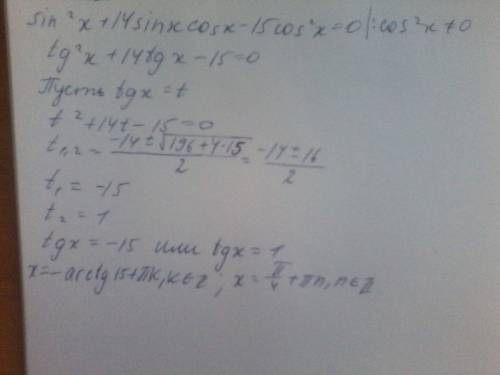 sin²x+14sinxcosx-15cos²x=0|:cos²x≠0
tg²x+14tgx-15=0
Пусть tgx=t
t²+14t-15=0
t₁,₂=(-14±√(196+4·15))/2=(-14±16)/2
t₁=-15
t₂=1
tgx=-15 или tgx=1
x=-arctg15+πk,k∈z; x=π/4+πn,n∈Z